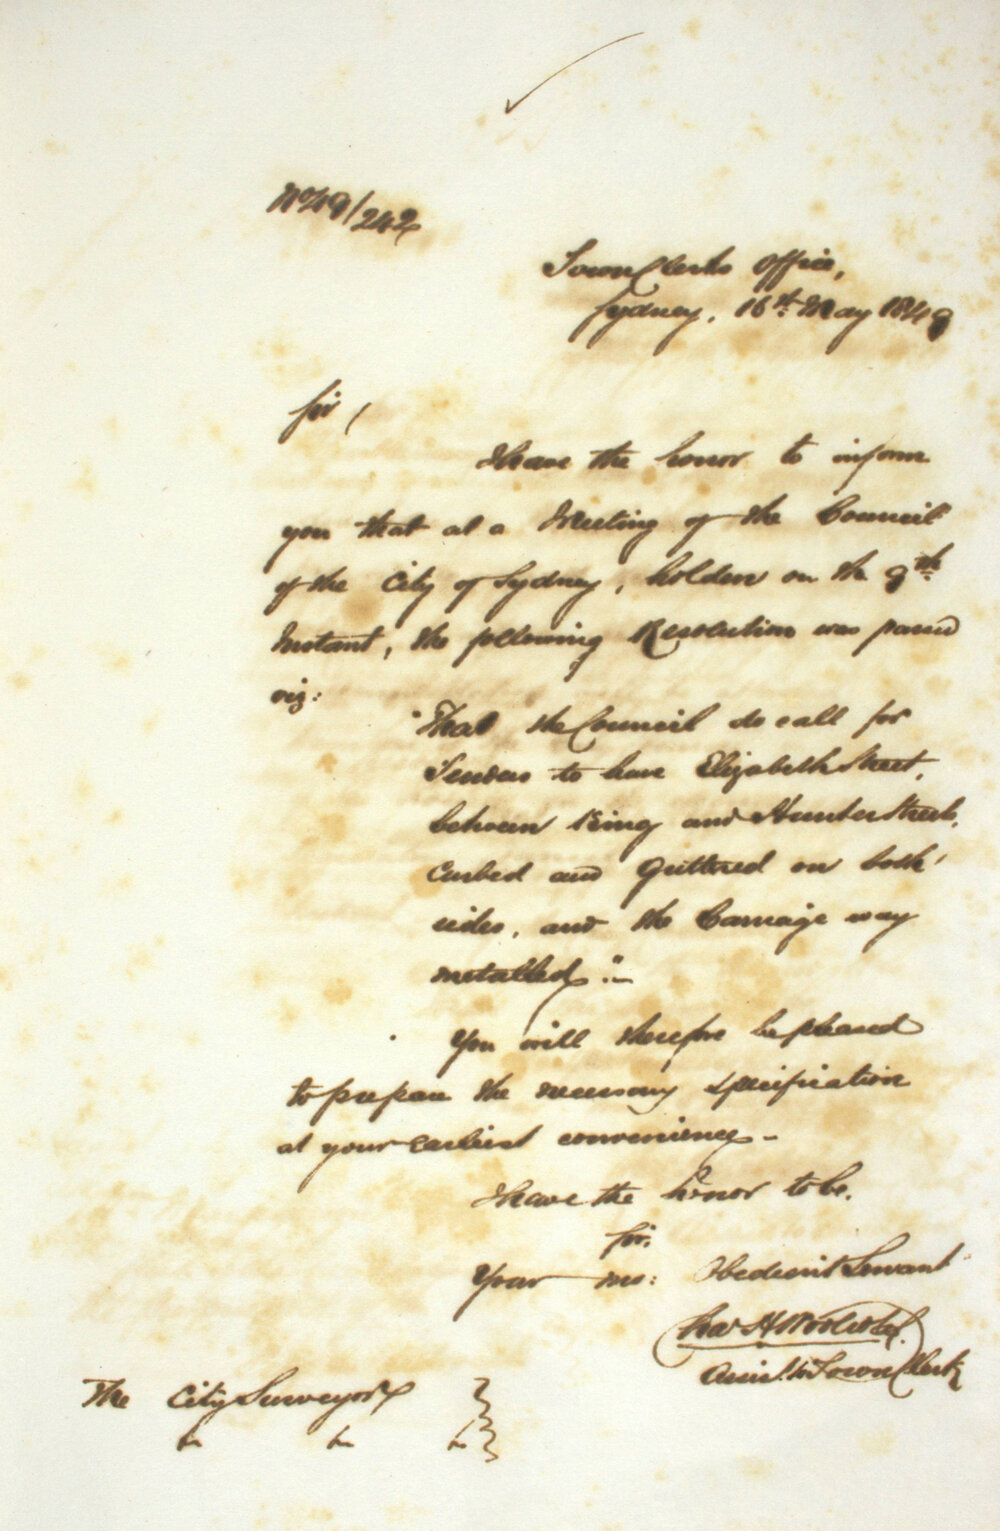 No 49/242
Town Clerks Office,
Sydney, 16th May 1849
Sir,
I have the honor to inform
you that at a Meeting of the Council
of the City of Sydney, holden on the 9th
Instant, the following Resolution was passed
viz:
"That the Council do call for
Tenders to have Elizabeth Street,
between King and Hunter Streets,
Curbed and Guttered on both
sides, and the Carriage way
metalled."
You will therefore be pleased
to prepare the necessary specification
at your earliest convenience.
I have the honor to be.
Sir.
Your mo: Obedient Servant
Chas H Woolcott
Assist. to Town Clerk
The City Surveyor